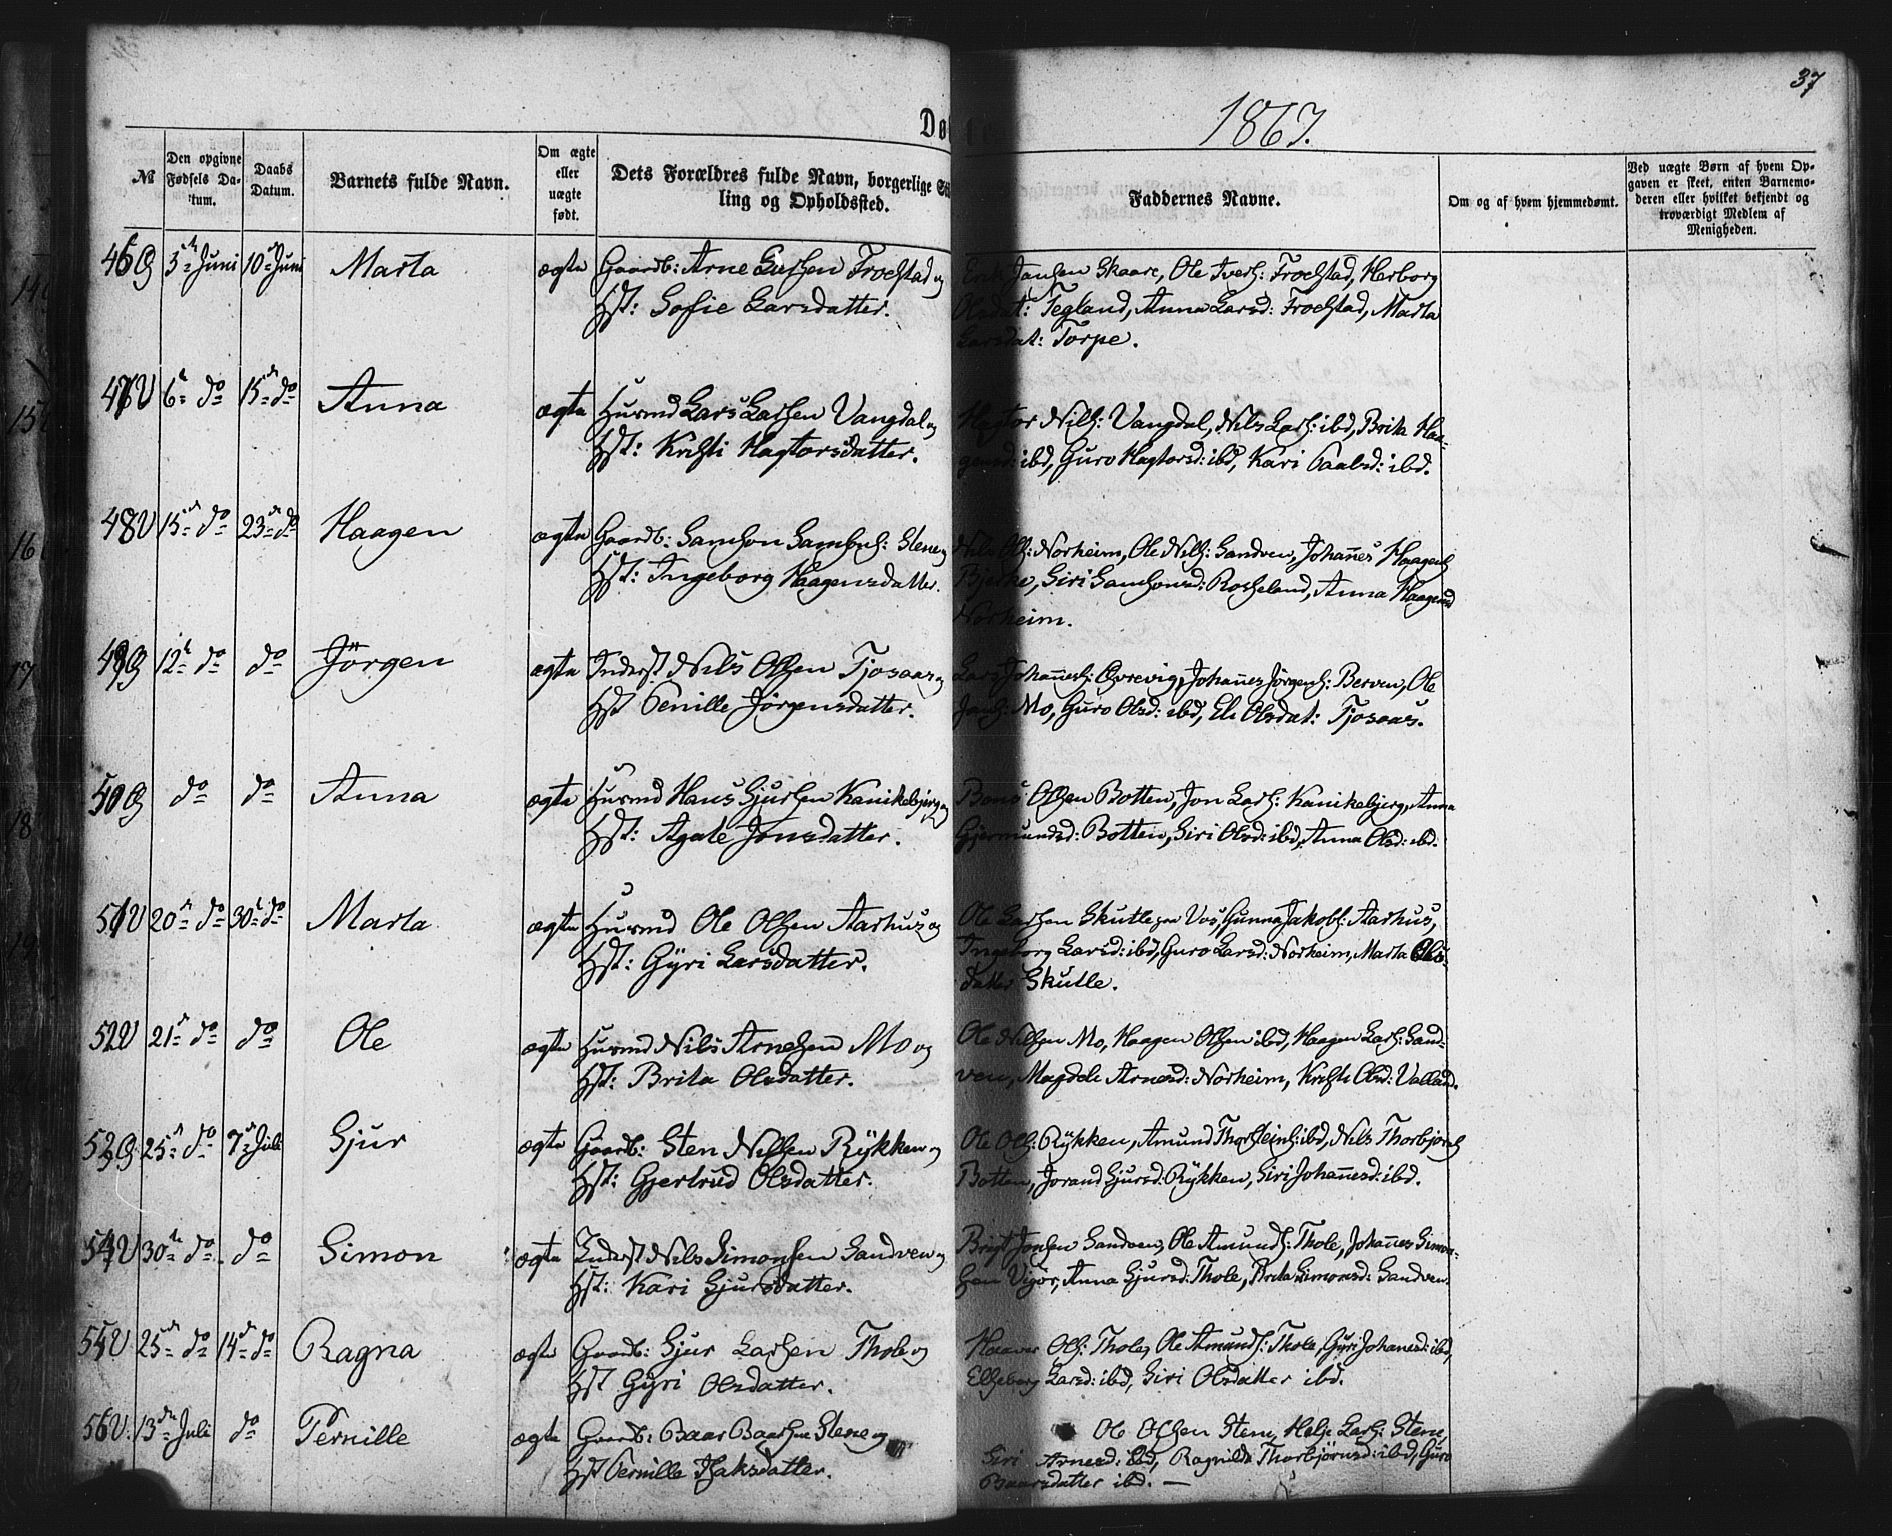 37
1867.
Døbte
№
Den opgivne Fødsels Datum.
Daabs Datum.
Barnets fulde Navn.
Om ægte eller uægte født.
Dets Forældres fulde Navn, borgerlige Stilling og Opholdssted.
Faddernes Navne.
Om og af hvem hjemmedømt.
Ved uægte Børn af hvem Opgaven er skeet, enten Barnemoderen eller hvilket bekjendt og troværdigt Medlem af Menigheden.
46 G 3 Juni 10 Juni Marta ægte Gaardb: Arne Trochstad og
Hst: Sofie Larsdatter.
Erik Jansen Skaare, Ole Ivers: Trochstad, Herborg
Olsdat: Tegland, Anna Larsd: Trochstad, Marta
Larsdat: Torpe.
47 U 6 do 15 do Anna ægte Husmd Lars Larsen Vangdal og
Hst: Kristi Hagtorsdatter.
Hagtor Nils: Vangdal, Nils Lars: ibd, Brita Haa-
gensd: ibd, Guro Hagtorsd: ibd, Kari Paalsd: ibd.
48 U 15 do 23 do Haagen ægte Gaardb: Samson Sambus: Stene og
Hst: Ingeborg Haagensdatter.
Nils Ols: Norheim, Ole Nils: Sandven, Johannes Haagens
Bjerke, Siri Samsonsd: Rosseland, Anna Haagensd
Norheim.
49 G 12 do do Jörgen ægte Inderst Nils Olsen Tjosaas og
Hst Pernille Jörgensdatter.
Lars Johannes: Övrevig, Johannes Jörgens: Berven, Ole
Jans: Mo, Guro Olsd: ibd, Eli Olsdat: Tjosaas.
50 G do do Anna ægte Husmd Hans Gjursen Kanikebjerg og
Hst: Agate Jonsdatter.
Olsen Botten, Jon Lars: Kanikebjerg, Anna
Gjermundsd: Botten, Siri Olsd: ibd, Anna Olsd: ibd.
51 U 20 do 30 do Marta ægte Husmd Ole Olsen Aarhus og
Hst: Gÿri Larsdatter.
Ole Larsen Skutle paa Vos, Gunna Jakobs: Aarhus,
Ingeborg Larsd: ibd, Guro Larsd: Norheim, Marta Ols-
datter Skutle.
52 U 21 do do Ole ægte Husmd Nils Arnesen Mo og
Hst: Brita Olsdatter.
Ole Nilsen Mo, Haagen Olsen ibd, Haagen Lars: Sand-
ven, Magdele Arnesd: Norheim, Kristi Olsd: Valland.
53 G 25 do 7 Juli Gjur ægte Gaardb: Sten Nilsen Rÿkken og
Hst: Gjertrud Olsdatter.
Ole Ols: Rÿkken, Amund Thorsteins: ibd, Nils Thorbjörns
Botten, Jorand Gjursd: Rÿkken, Siri Johannesd: ibd.
54 U 30 do do Simon ægte Inderst Nils Simonsen Sandven og
Hst: Kari Gjursdatter.
Brigt Jonsen Sandven, Ole Amunds: Thole, Johannes Simon-
sen Vigör, Anna Gjursd: Thole, Brita Simonsd: Sandven.
55 U 25 do 14 do Ragna ægte Gaardb: Gjur Larsen Thole og
Hst Gÿri Olsdatter.
Haaver Ols: Thole, Ole Amunds: Thole, Gÿri Johanesd: ibd,
Elseborg Larsd: ibd, Siri Olsdatter ibd.
56 U. 13 Juli do Pernille ægte Gaardb: Baar Baarsen Stene og
Hst Pernille Isaksdatter.
Ole Olsen Stene, Helje Lars: Stene,
Siri Arnesd: ibd, Ragnilde Thorbjörnsd: ibd, Guro
Baarsdatter ibd. —